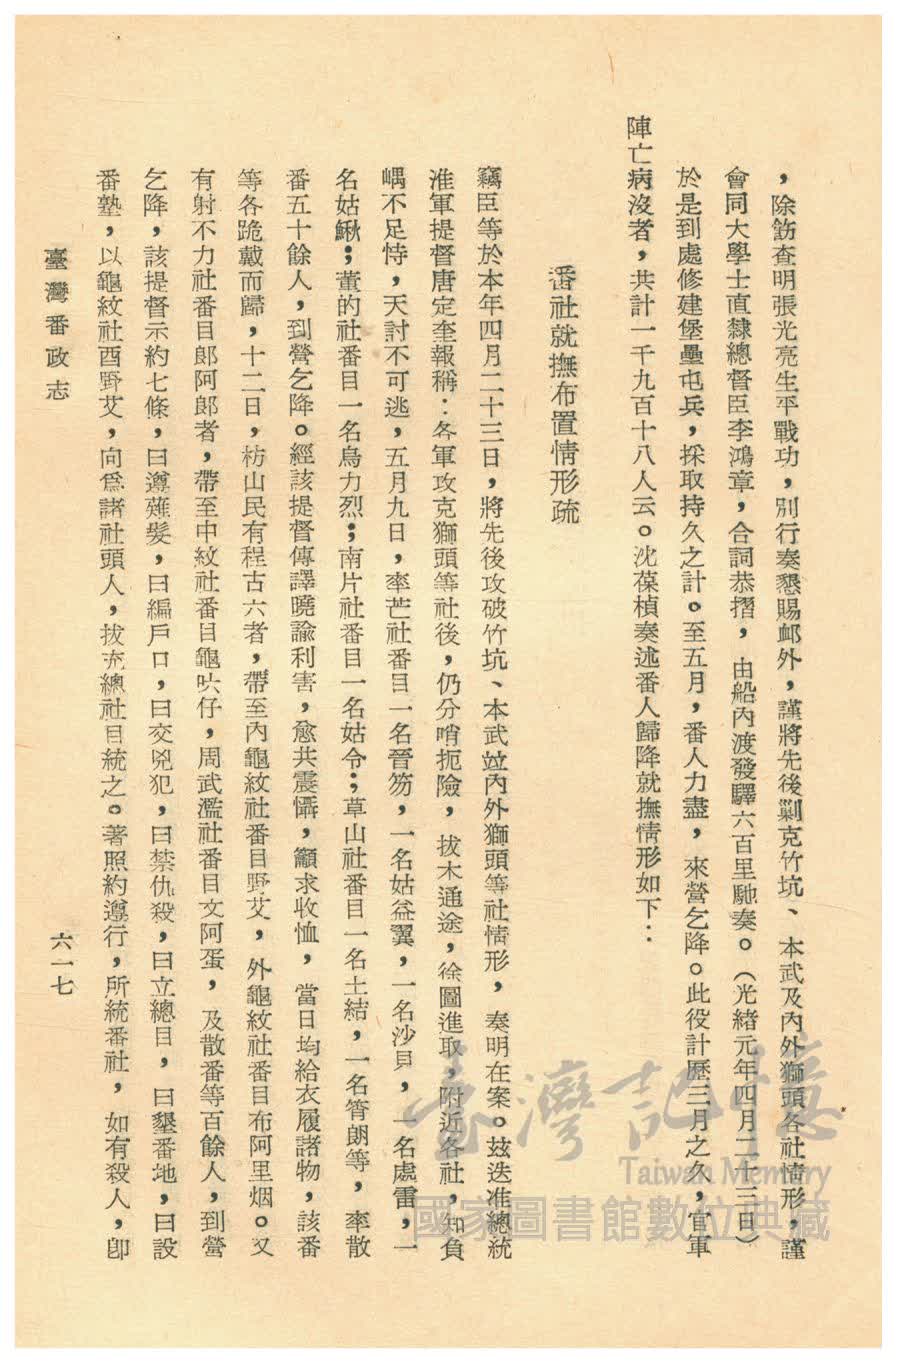 ，除筋查明張光亮生平戰功，別行奏懇賜卹外，謹將先後剿克竹坑、本武及內外獅頭各社情形，謹
會同大學士直隸總督臣李鴻章，合詞恭摺，由船內渡發驛六百里馳奏。（光緒元年四月二十三日）
於是到處修建堡壘屯兵，採取持久之計。至五月，番人力盡，來營乞降。此役計歷三月之久，官軍
陣亡病沒者，共計一千九百十八人云。沈葆楨奏述番人歸降就撫情形如下：
番社就撫布置情形疏
竊臣等於本年四月二十三日，將先後攻破竹坑、本武竝內外獅頭等社情形，奏明在案。玆迭准總統
淮軍提督唐定奎報稱：各軍攻克獅頭等社後，仍分哨扼險，拔木通途，徐圖進取，附近各社，知負
嵎不足恃，天討不可逃，五月九日，率芒社番目一名晉笏，一名姑益翼，一名沙貝，一名處雷，一
名姑鰍；董的社番目一名烏力烈；南片社番目一名姑令；草山社番目一名土結，一名筲朗等，率散
番五十餘人，到營乞降。經該提督傳譯曉諭利害，愈共震懾，籲求收恤，當日均給衣履諸物，該番
等各跪戴而歸，十二日，枋山民有程古六者，帶至內龜紋社番目野艾，外龜紋社番目布阿里烟。又
有射不力社番目郎阿郎者，帶至中紋社番目龜吠仔，周武濫社番目文阿蛋，及散番等百餘人，到營
乞降，該提督示約七條，曰遵薙髮，曰編戶口，曰交兇犯，曰禁仇殺，曰立總目，曰墾番地，曰設
番塾，以龜紋社酉野艾，向爲諸社頭人，拔充總社目統之。著照約遵行，所統番社，如有殺人，卽
臺灣番政志
六一七
臺灣記憶
Taiwan Memory
國家圖書館數位典藏